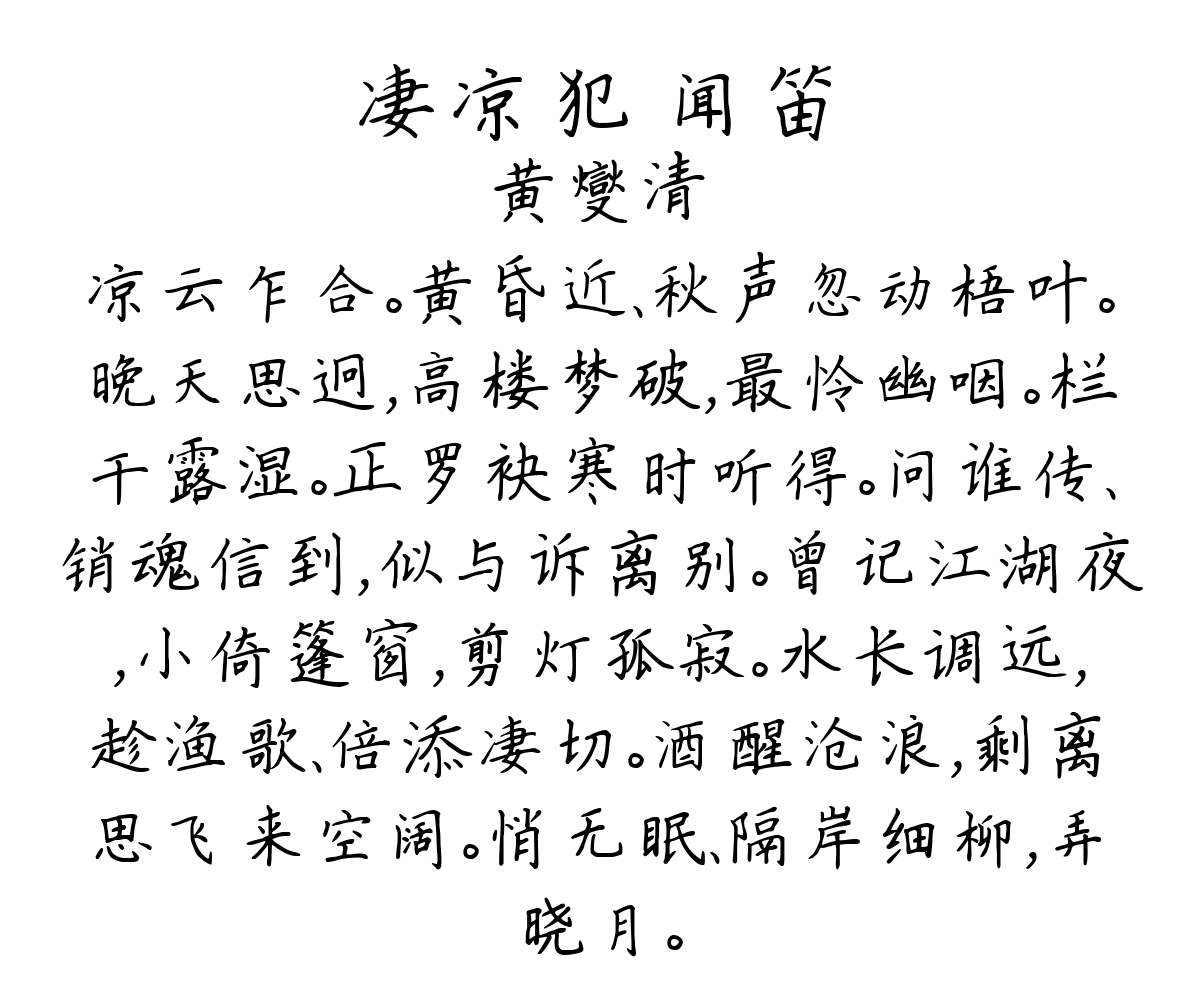 凄凉犯 闻笛
黄燮清
凉云乍合。黄昏近、秋声忽动梧叶。
晚天思迥,高楼梦破,最怜幽咽。栏
干露湿。正罗袂寒时听得。问谁传、
销魂信到,似与诉离别。曾记江湖夜
,小倚篷窗,剪灯孤寂。水长调远,
趁渔歌、倍添凄切。酒醒沧浪,剩离
思飞来空阔。悄无眠、隔岸细柳,弄
晓月。